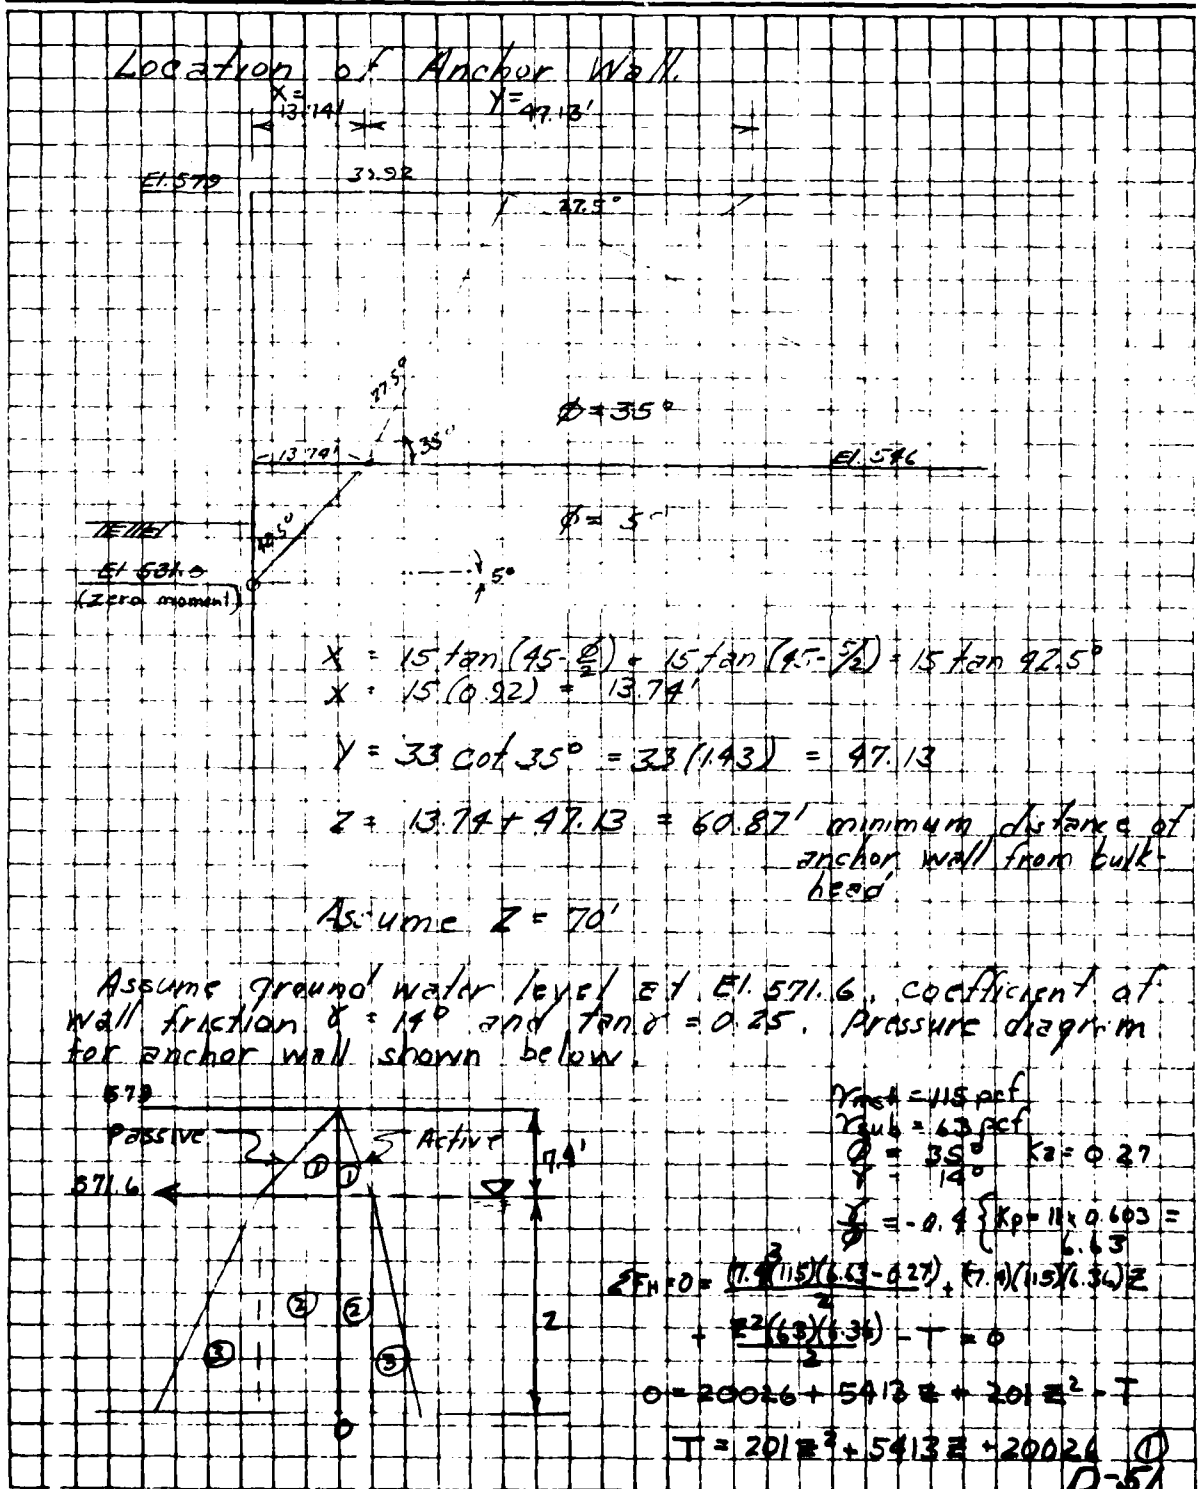 Location of Anchor Wall.
X =
13.74'
Y = 47.13'
El. 579
33.92
27.5°
27.5°
φ = 35°
35°
13.74'
El. 546
φ = 5°
42.5°
El 531.0
(Zero moment)
5°
X = 15 tan (45 - φ/2) = 15 tan (45 - 5/2) = 15 tan 42.5°
X = 15 (0.92) = 13.74'
Y = 33 cot 35° = 33 (1.43) = 47.13
Z = 13.74 + 47.13 = 60.87' minimum distance of
anchor wall from bulk-
head.
Assume Z = 70'
Assume ground water level at El. 571.6, coefficient of
wall friction γ = 14° and tan γ = 0.25. Pressure diagram
for anchor wall shown below.
579
Passive
Active
7.4'
571.6
① ①
② ②
③ ③
Z
O
γmst = 115 pcf
γsub = 63 pcf
φ = 35° Ka = 0.27
γ = 14°
γ/φ = -0.4 { Kp = 11 x 0.603 =
6.63
ΣFH = 0 = (7.4)²(115)(6.63 - 0.27)/2 + (7.4)(115)(6.36) Z
+ Z²(63)(6.36)/2 - T = 0
0 = 20026 + 5413 Z + 201 Z² - T
T = 201 Z² + 5413 Z + 20026 ①
D-51